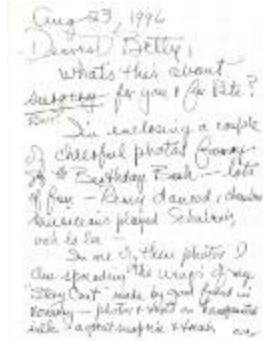 Aug 23, 1996
Dearest Betty,
What's this about
surgery for you & for Pete?
I'm enclosing a couple
of cheerful photos from
Birthday Bash — lots
of fun — danced,
musicians played
ooh la la —
In one of these photos I
am spreading the wings of my
"Story Coat" made by good friend in
— photo & on
silk — a great surprise & over